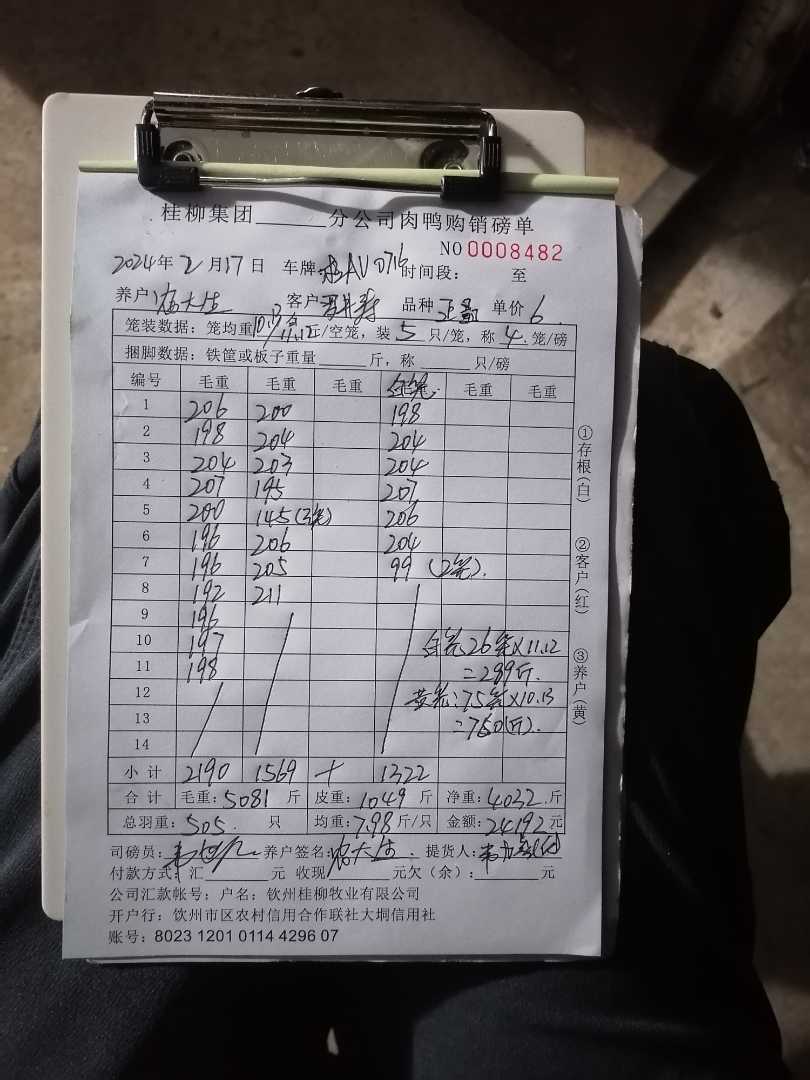 桂柳集团______分公司肉鸭购销磅单
NO 0008482
2024年2月17日 车牌 AV0716 时间段: 至
养户: 大 客户: 品种 单价6
笼装数据:笼均重10.13 11.12斤/空笼,装5只/笼,称4笼/磅
捆脚数据:铁筐或板子重量______斤,称______只/磅
编号 毛重 毛重 毛重 白笼: 毛重 毛重
1 206 200 198
2 198 204 204
3 204 203 204
4 207 195 207
5 200 145(3笼) 206
6 196 206 204
7 196 205 99(2笼).
8 192 211
9 196
10 197 白笼26笼×11.12
11 198 =289斤.
12 黄笼:75笼×10.13
13 =760(斤).
14
小计 2190 1569 + 1322
合计 毛重:5081斤 皮重:1049斤 净重:4032斤
总羽重:505.只 均重:7.98斤/只 金额:24192元
司磅员: 养户签名: 大 提货人:
付款方式:汇______元 收现______元欠(余):______元
公司汇款帐号:户名:钦州桂柳牧业有限公司
开户行:钦州市区农村信用合作联社大垌信用社
账号:8023 1201 0114 4296 07
①存根(白)
②客户(红)
③养户(黄)